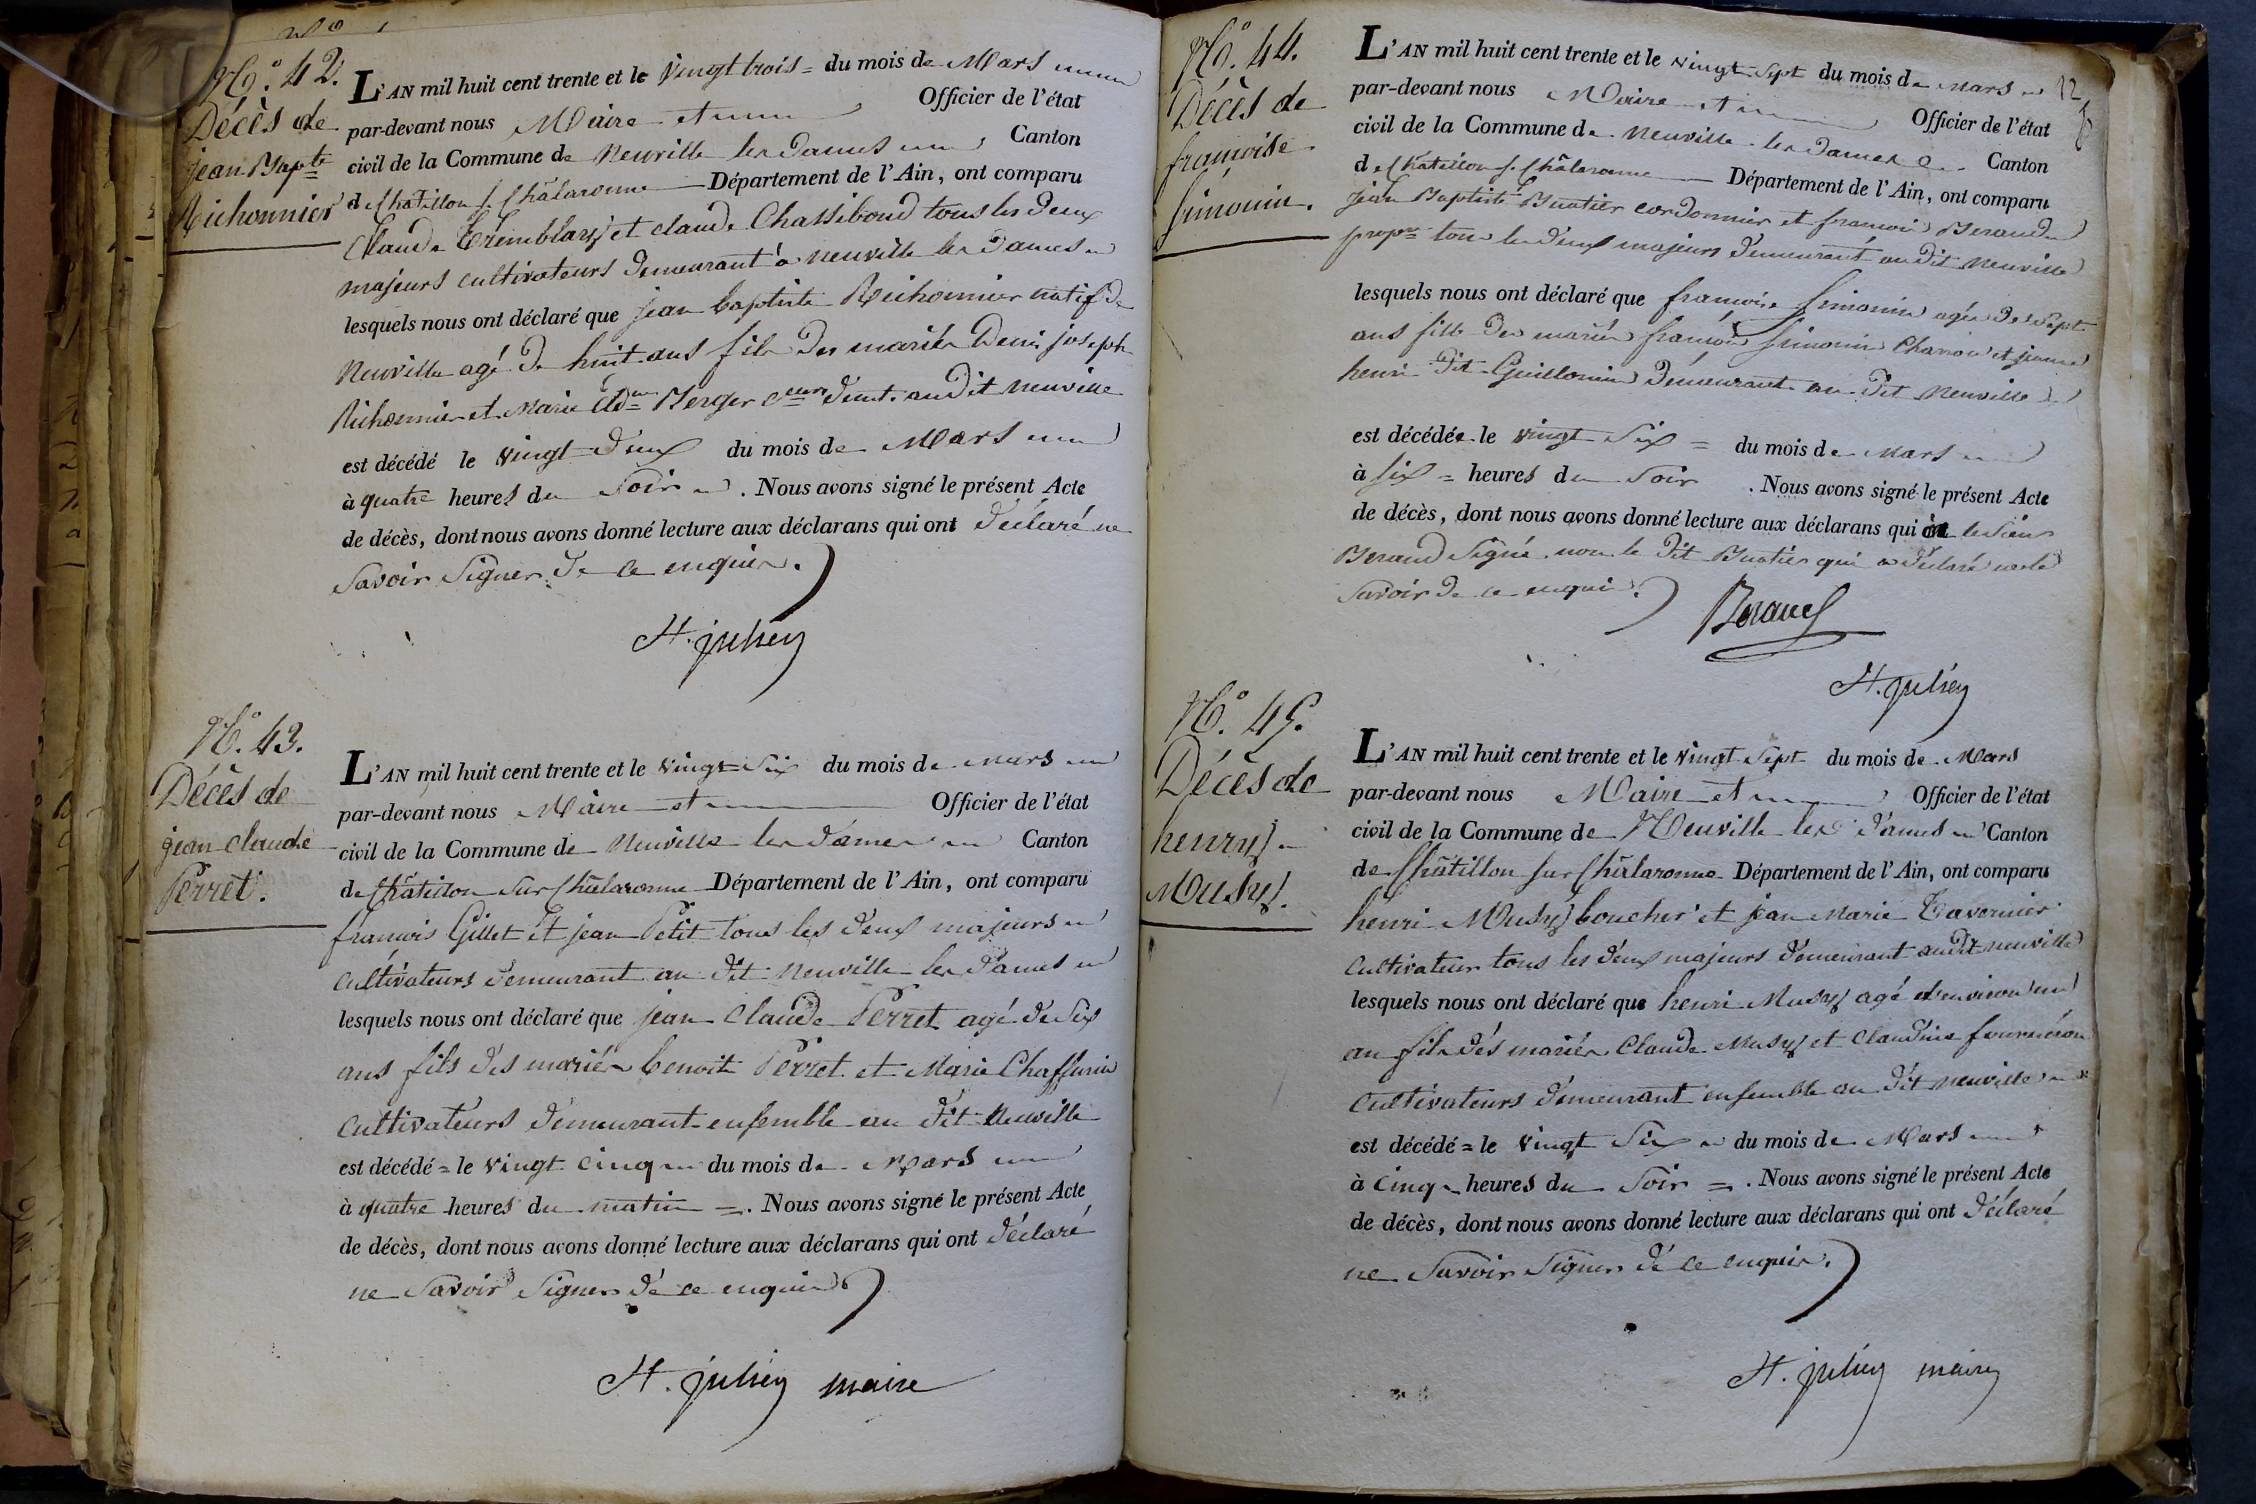 N.º 42.
Décès de
jean Bapte
Richonnier
L'AN mil huit cent trente et le vingt trois = du mois de Mars
par-devant nous Maire et Officier de l'état
civil de la Commune de Neuville les Dames Canton
de Chatillon s. Châlaronne Département de l'Ain, ont comparu
Claude Tremblay et claude Chassiboud tous les deux
majeurs cultivateurs demeurant à neuville les Dames
lesquels nous ont déclaré que jean baptiste Richonnier natif de
Neuville agé de huit ans fils des mariés Denis joseph
Richonnier et Marie Berger demt. audit neuville
est décédé le vingt deux du mois de Mars
à quatre heures du soir . Nous avons signé le présent Acte
de décès, dont nous avons donné lecture aux déclarans qui ont déclaré ne
savoir signer de ce enquis.
H. julién
N.º 43.
Décès de
jean claude
Perret.
L'AN mil huit cent trente et le vingt six du mois de mars
par-devant nous Maire et Officier de l'état
civil de la Commune de Neuville les dames Canton
de Châtillon sur Châlaronne Département de l'Ain, ont comparu
françois Gillet et jean Petit tous les deux majeurs
cultivateurs demeurant au dit Neuville les dames
lesquels nous ont déclaré que jean Claude Perret agé de six
ans fils des mariés benoit Perret et Marie Chaffurin
cultivateurs demeurant ensemble au dit Neuville
est décédé = le vingt cinq du mois de Mars
à quatre heures du matin =. Nous avons signé le présent Acte
de décès, dont nous avons donné lecture aux déclarans qui ont déclaré
ne savoir signer de ce enquis.
H. julién maire
12
N.º 44.
Décès de
françoise
Simonin.
L'AN mil huit cent trente et le vingt Sept du mois de mars
par-devant nous Maire et Officier de l'état
civil de la Commune de Neuville les dames Canton
de Châtillon s. Châlaronne Département de l'Ain, ont comparu
jean Baptiste Buatier cordonnier et françois Beraud
propre tous les deux majeurs demeurant au dit Neuville
lesquels nous ont déclaré que françoise Simonin agée de sept
ans fille des mariés françois Simonin Charron et jeanne
henri dit Guillomin demeurant au dit Neuville
est décédée le vingt six = du mois de Mars
à six = heures du soir . Nous avons signé le présent Acte
de décès, dont nous avons donné lecture aux déclarans qui le sieur
Beraud signé non le dit Buatier qui a déclaré ne le
savoir de ce enquis.
Beraud
H. julién
N.º 45.
Décès de
henry
Musy.
L'AN mil huit cent trente et le vingt Sept du mois de Mars
par-devant nous Maire et Officier de l'état
civil de la Commune de Neuville les dames Canton
de Châtillon sur Châlaronne Département de l'Ain, ont comparu
henri Musy boucher et jean Marie Tavernier
cultivateur tous les deux majeurs demeurant audit neuville
lesquels nous ont déclaré que henri Musy agé d'environ un
an fils dés mariés Claude Musy et Claudine fourneron
cultivateurs demeurant ensemble au dit neuville
est décédé = le vingt six du mois de Mars
à cinq heures du soir =. Nous avons signé le présent Acte
de décès, dont nous avons donné lecture aux déclarans qui ont déclaré
ne savoir signer de ce enquis.
H. julién maire